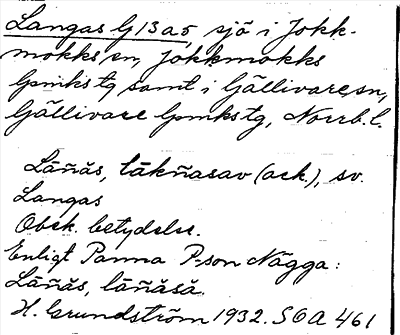 Langas G 13 a5 sjö i Jokk-
mokks sn, Jokkmokks
lpmkstg samt i Gällivare sn,
Gällivare lpmkstg, Norrb. l.
Lāŋ̄ăs, (ack.), sv.
Langas
Obek. betydelse.
Enligt Panna P-son Nägga:
Lāŋ̄ăs, lāŋ̄ăsă
H. Grundström 1932. SOA 461